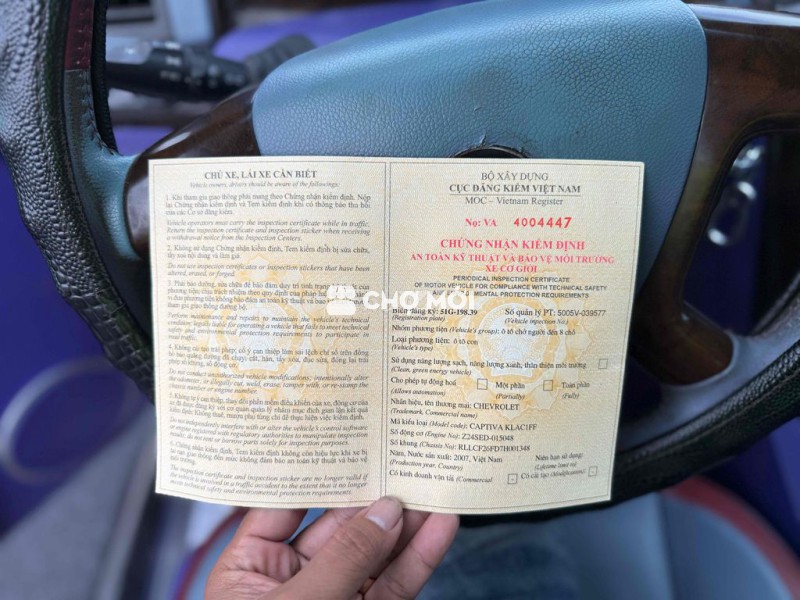 CHỦ XE, LÁI XE CẦN BIẾT
Vehicle owners, drivers should be aware of the followings.
1. Khi tham gia giao thông phải mang theo Chứng nhận kiểm định. Nộp
lại Chứng nhận kiểm định và Tem kiểm định khi có thông báo thu hồi
của các Cơ sở đăng kiểm.
Vehicle operators must carry the inspection certificate while in traffic.
Return the inspection certificate and inspection sticker when receiving
a withdrawal notice from the Inspection Centers.
2. Không sử dụng Chứng nhận kiểm định, Tem kiểm định bị sửa chữa,
tẩy xoá nội dung và làm giả.
Do not use inspection certificates or inspection stickers that have been
altered, erased, or forged.
3. Phải bảo dưỡng, sửa chữa để bảo đảm duy trì tình trạng của
phương tiện; chịu trách nhiệm theo quy định của pháp
đưa phương tiện không bảo đảm an toàn kỹ thuật và bảo
tham gia giao thông đường bộ.
Perform maintenance and repairs to maintain the vehicle's technical
condition; legally liable for operating a vehicle that fails to meet technical
safety and environmental protection requirements to participate in
road traffic.
4. Không cải tạo trái phép; cố ý can thiệp làm sai lệch chỉ số trên đồng
hồ báo quãng đường đã chạy; cắt, hàn, tẩy xóa, đục sửa, đóng lại trái
phép số khung, số động cơ.
Do not conduct unauthorized vehicle modifications; intentionally alter
the odometer, or illegally cut, weld, erase, tamper with, or re-stamp the
chassis number or engine number.
5. Không tự ý can thiệp, thay đổi phần mềm điều khiển của xe, động cơ của xe
Không thuê, mượn phụ tùng chỉ để thực hiện việc kiểm định.
Do not independently interfere with or alter the vehicle's control software
or engine registered with regulatory authorities to manipulate inspection
results, do not rent or borrow parts solely for inspection purposes.
6. Chứng nhận kiểm định, Tem kiểm định không còn hiệu lực khi xe bị
tai nạn giao thông đến mức không đảm bảo an toàn kỹ thuật và bảo vệ
môi trường.
The inspection certificate and inspection sticker are no longer valid if
the vehicle is involved in a traffic accident to the extent that it no longer
meets technical safety and environmental protection requirements.
BỘ XÂY DỰNG
CỤC ĐĂNG KIỂM VIỆT NAM
MOC – Vietnam Register
No: VA 4004447
CHỨNG NHẬN KIỂM ĐỊNH
AN TOÀN KỸ THUẬT VÀ BẢO VỆ MÔI TRƯỜNG
XE CƠ GIỚI
PERIODICAL INSPECTION CERTIFICATE
OF MOTOR VEHICLE FOR COMPLIANCE WITH TECHNICAL SAFETY
MENTAL PROTECTION REQUIREMENTS
CHỢ MỚI
Biển đăng ký: 51G-198.39 Số quản lý PT: 5005V-039577
(Registration plate) (Vehicle inspection No.)
Nhóm phương tiện (Vehicle's group): ô tô chở người đến 8 chỗ
Loại phương tiện: ô tô con
(Vehicle's type)
Sử dụng năng lượng sạch, năng lượng xanh, thân thiện môi trường
(Clean, green energy vehicle)
Cho phép tự động hoá Một phần Toàn phần
(Allows automation) (Partially) (Fully)
Nhãn hiệu, tên thương mại: CHEVROLET
(Trademark, Commercial name)
Mã kiểu loại (Model code): CAPTIVA KLAC1FF
Số động cơ (Engine No): Z24SED-015048
Số khung (Chassis No): RLLCF26FD7H001348
Năm, Nước sản xuất: 2007, Việt Nam Niên hạn sử dụng:
(Production year, Country) (Lifetime limit to)
Có kinh doanh vận tải (Commercial Có cải tạo (Modification)